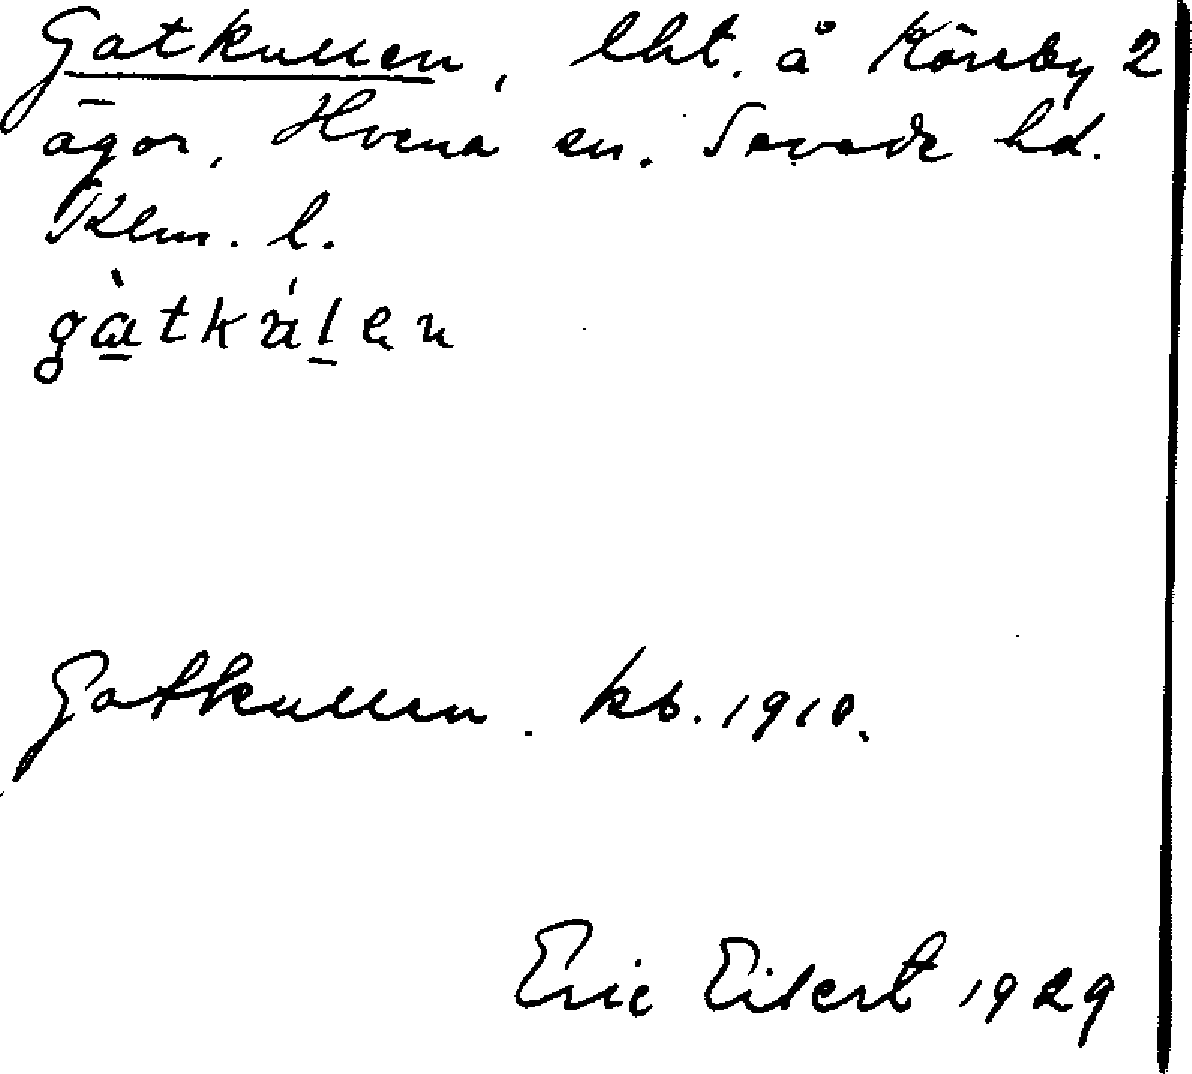 Gatkullen, lht. å Körby 2
ägor, Hvena sn. Sevede hd.
Klm. l.
gàtkúlen
Gatkullen. kb. 1910.
Eric Eilert 1929